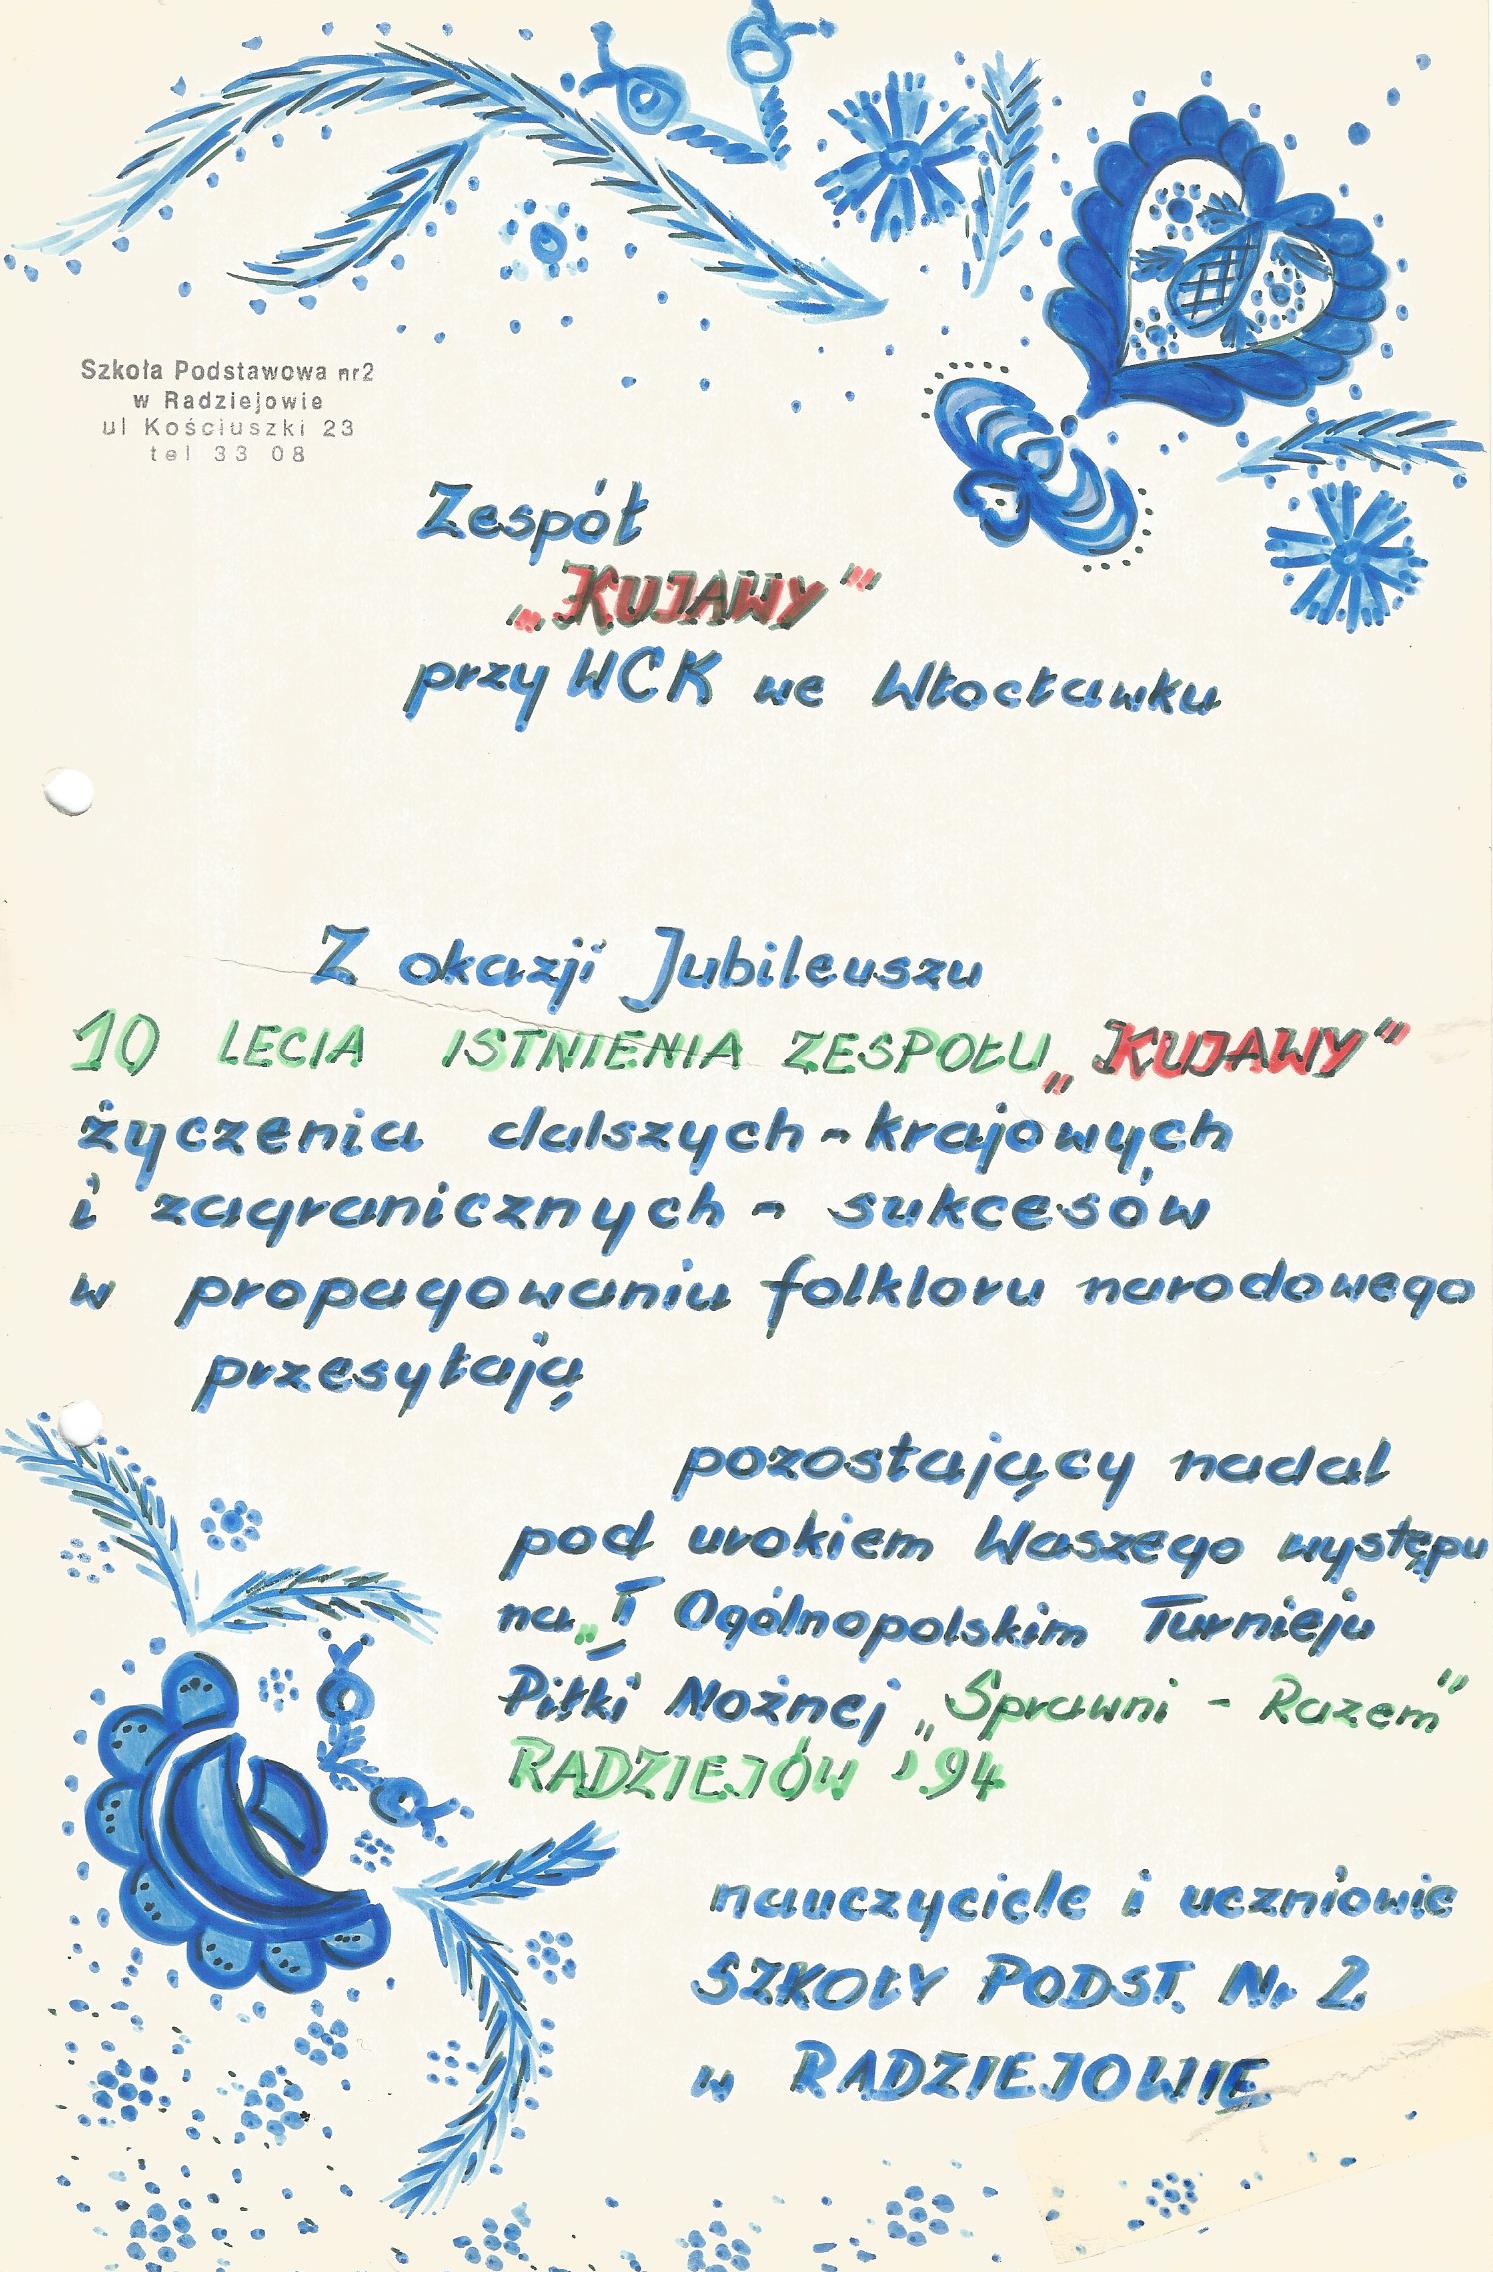 Szkoła Podstawowa nr2
w Radziejowie
ul Kościuszki 23
tel 33 08
Zespół
„KUJAWY”
przy WCK we Włocławku
Z okazji Jubileuszu
10 LECIA ISTNIENIA ZESPOŁU „KUJAWY”
życzenia dalszych - krajowych
i zagranicznych - sukcesów
w propagowaniu folkloru narodowego
przesyłają
pozostający nadal
pod urokiem Waszego występu
na „I Ogólnopolskim Turnieju
Piłki Nożnej „Sprawni - Razem”
RADZIEJÓW '94
nauczyciele i uczniowie
SZKOŁY PODST. Nr 2
w RADZIEJOWIE